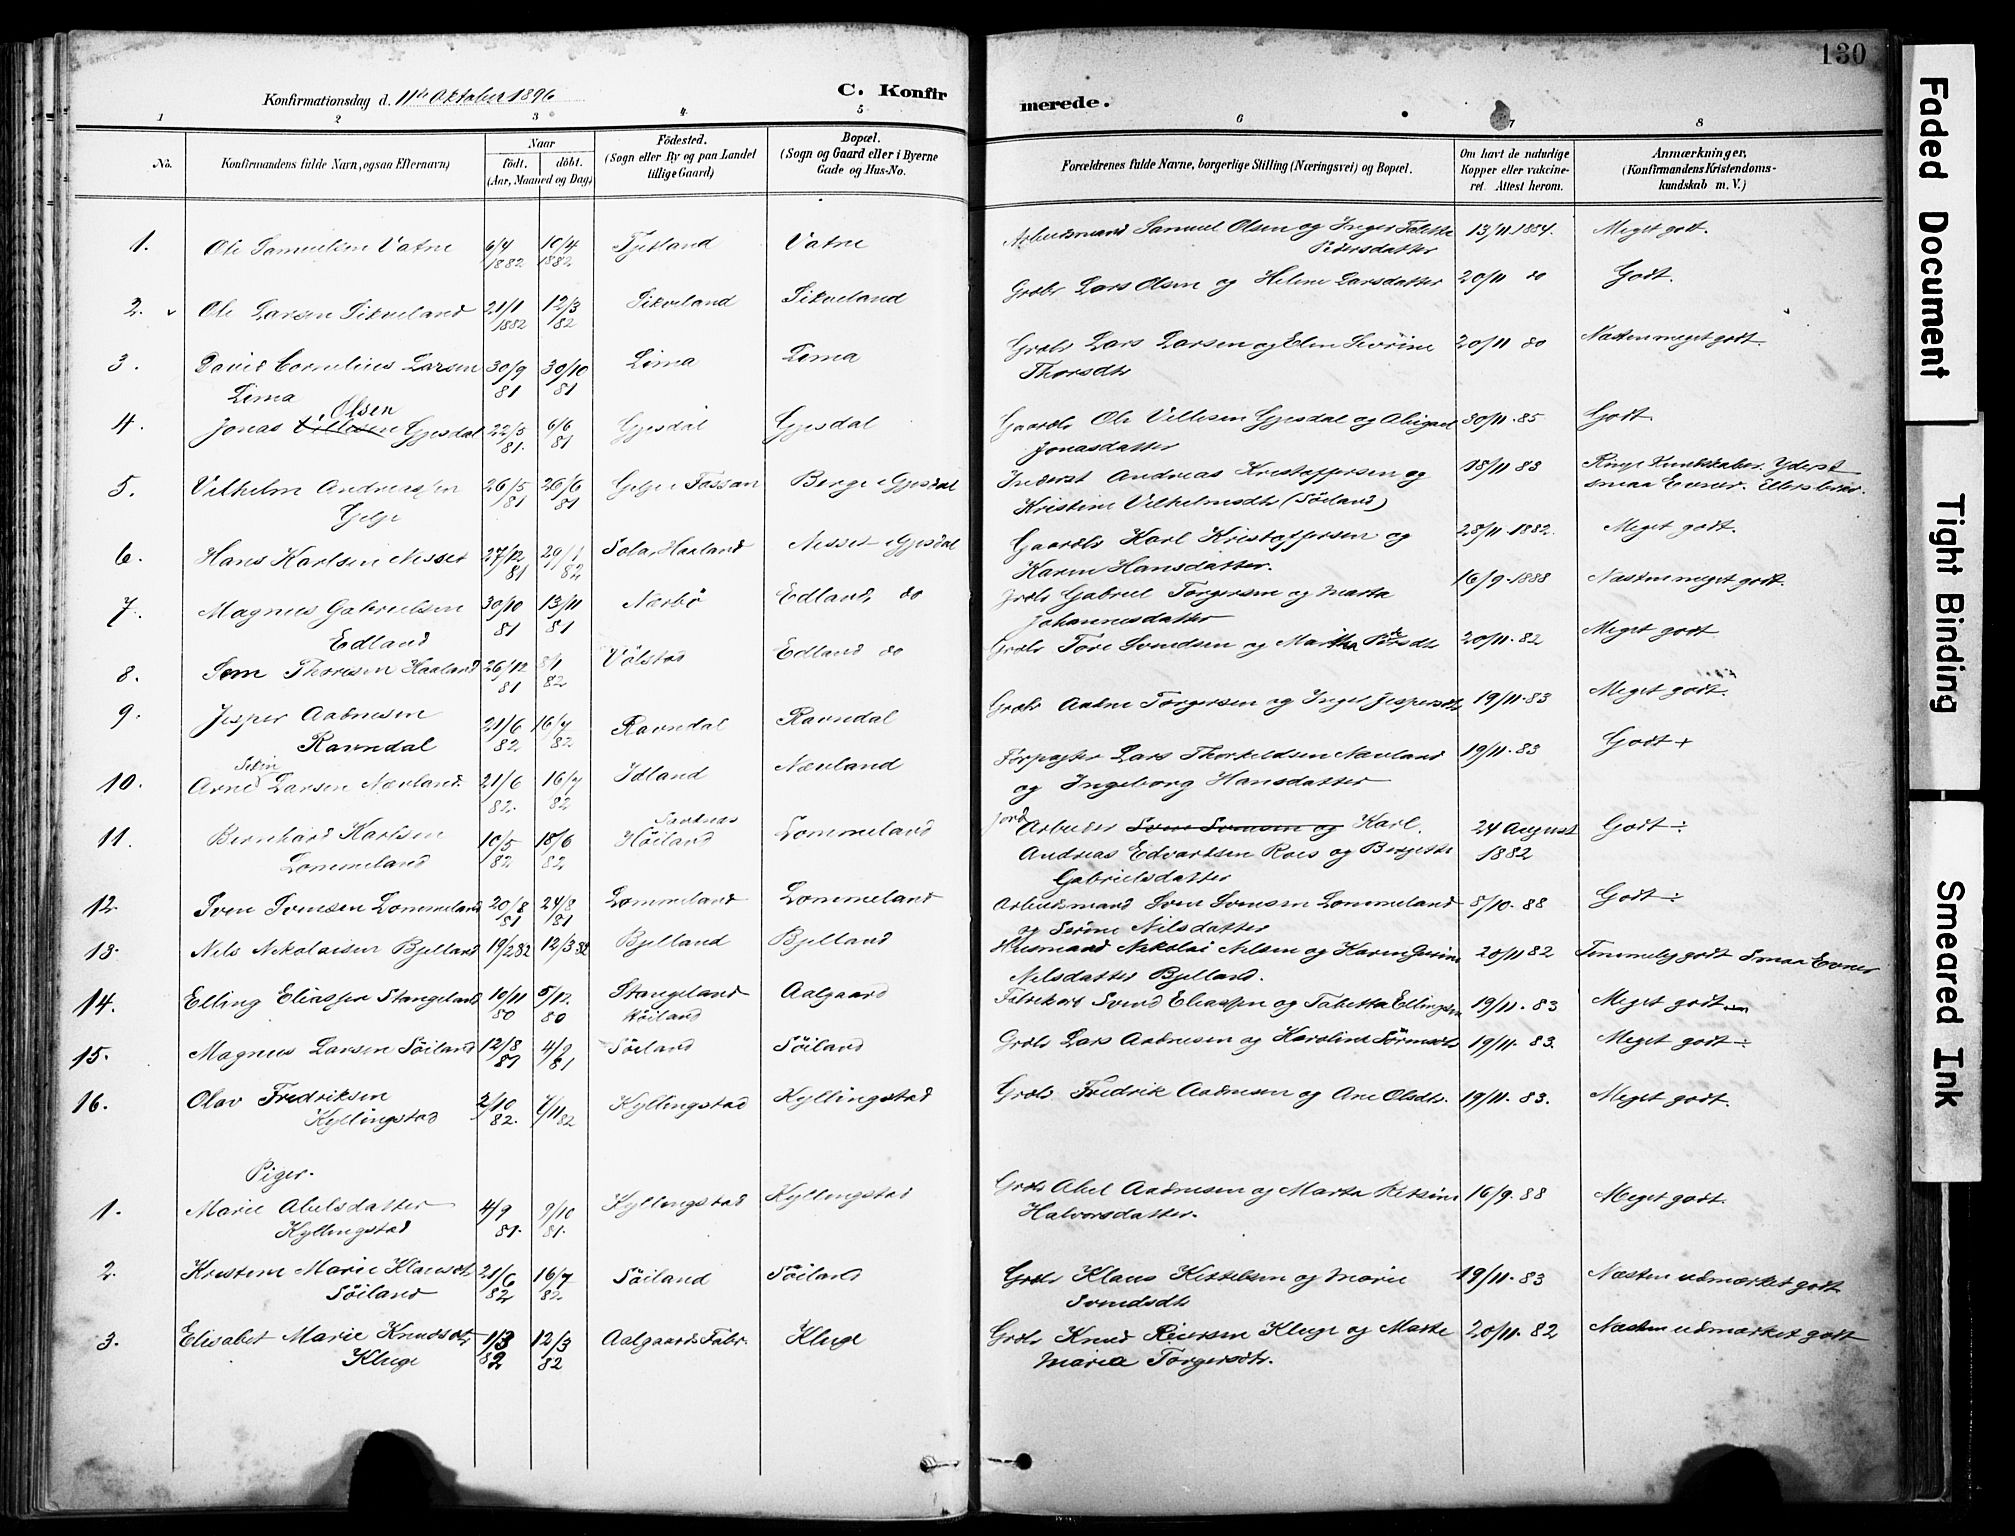 130
Konfirmationsdag d. 11te Oktober 1896
C. Konfir
merede.
1 2 3 4 5 6 7 8
No.
Konfirmandens fulde Navn, ogsaa Efternavn)
Naar
födt. döbt.
(Aar, Maaned og Dag)
Födested.
(Sogn eller By og paa Landet
tillige Gaard)
Bopæl.
(Sogn og Gaard eller i Byerne
Gade og Hus-No.
Forældrenes fulde Navne, borgerlige Stilling (Næringsvei) og Bopæl.
Om havt de naturlige
Kopper eller vakcine-
ret. Attest herom.
Anmærkninger,
(Konfirmandens Kristendoms-
kundskab m. V.)
1. Ole Samuelsen Vatne 6/4 1882 10/4 1882 Tjetland Vatne Arbeidsmand Samuel Olsen og Inger Tabetta Pedersdatter 13/11 1884. Meget godt.
2. Ole Larsen Sikveland 21/1 1882 12/3 82 Sikveland Sikveland Grdbr Lars Olsen og Helene Larsdatter 20/11 do Godt.
3. David Cornelius Larsen Lima 30/9 81 30/10 81 Lima Lima Grdbr Lars Larsen og Elen Sevrine Thorsdtr 20/11 do Næsten meget godt.
4. Jonas Olsen Gjesdal 22/5 81. 6/6 81 Gjesdal Gjesdal Gaardbr Ole Villesen Gjesdal og Abigael Jonasdatter 30/11 85 Godt.
5. Vilhelm Andreassen Gjelje 26/5 81 26/6 81 Fossan Berge i Gjesdal Inderst Andreas Kristoffersen og Kristine Vilhelmsdtr (Söiland) 18/11 83 Ringe Kundskaber. Yderst smaa Evner.
6. Hans Karlsen Nesset 27/12 81 29/1 82 Sola, Haaland Nesset i Gjesdal Gaardbr Karl Kristoffersen og Karen Hansdatter. 28/11 1882. Meget godt.
7. Magnus Gabrielsen Edland 30/10 81 13/11 81 Nærbö Edland, do Grdbr Gabriel Torgersen og Marta Johannesdatter 16/9 1888 Næsten meget godt.
8. Thoresen Haaland 26/12 81 8/1 82 Völstad Edland do Grdbr Tore Svendsen og Martha Pedersdtr 20/11 82 Meget godt
9. Jesper Aadnesen Ravndal 21/6 82 16/7 82 Ravndal Ravndal Grdbr Aadne Torgersen og Inger Jespersdtr 19/11 83 Meget godt.
10. Arne Larsen Nævland 21/6 82. 16/7 82 Idland Nævland Forpagter Lars Thorkeldsen Nævland og Ingeborg Hansdatter 19/11 83 Godt +
11. Bernhard Karlsen Lommeland 10/5 82 18/6 82 Sandnes Höiland Lommeland Jord Arbeider Karl. Andreas Edvartsen Roes og Bergette Gabrielsdatter 24 August 1882 Godt ÷
12. Sven Svensen Lommeland 20/8 81 24/8 81 Lommeland Lommeland Arbeidsmand Sven Svensen Lommeland og Serine Nilsdatter 8/10. 88 Godt ÷
13. Nels Nikolaisen Bjelland 19/2 82 12/3 82 Bjelland Bjelland Husmand Nikolai Nilsen og Karen Gurine Nelsdatter Bjelland. 20/11 82 Temmelig godt Smaa Evner
14. Elling Eliassen Stangeland 10/11 80 5/12. 80 Stangeland Höiland Aalgaard Fabrikarb Svend Eliassen og Tabetta Ellingsdtr 19/11. 83 Meget godt
15. Magnus Larsen Söiland 12/8 81 4/9 81 Söiland Söiland Grdbr Lars Aadnesen og Karoline Sörensdtr 19/11. 83. Meget godt ÷
16. Olav Fredriksen Kyllingstad 2/10 82. 7/11 82 Kyllingstad Kyllingstad Grdbr Fredrik Aadnesen og Ane Olsdtr. 19/11. 83. Meget godt.
Piger.
1. Marie Abelsdatter Kyllingstad 4/9 81. 9/10 81. Kyllingstad Kyllingstad Grdbr Abel Aadnesen og Marta Halvorsdatter. 16/9. 88 Meget godt.
2. Kristine Marie Klausdtr Söiland 21/6 82 16/7 82. Söiland Söiland Grdbr Klaus Kittelsen og Marie Svendsdtr 19/11. 83 Næsten udmærket godt
3. Elisabet Marie Knudsdtr Kluge 1/3 82 12/3 82 Aalgaards Fabr. Kluge Grdbr Knud Reiersen Kluge og Marte Maria Torgersdtr. 20/11. 82 Næsten udmærket godt
Faded Document
Tight Binding
Smeared Ink